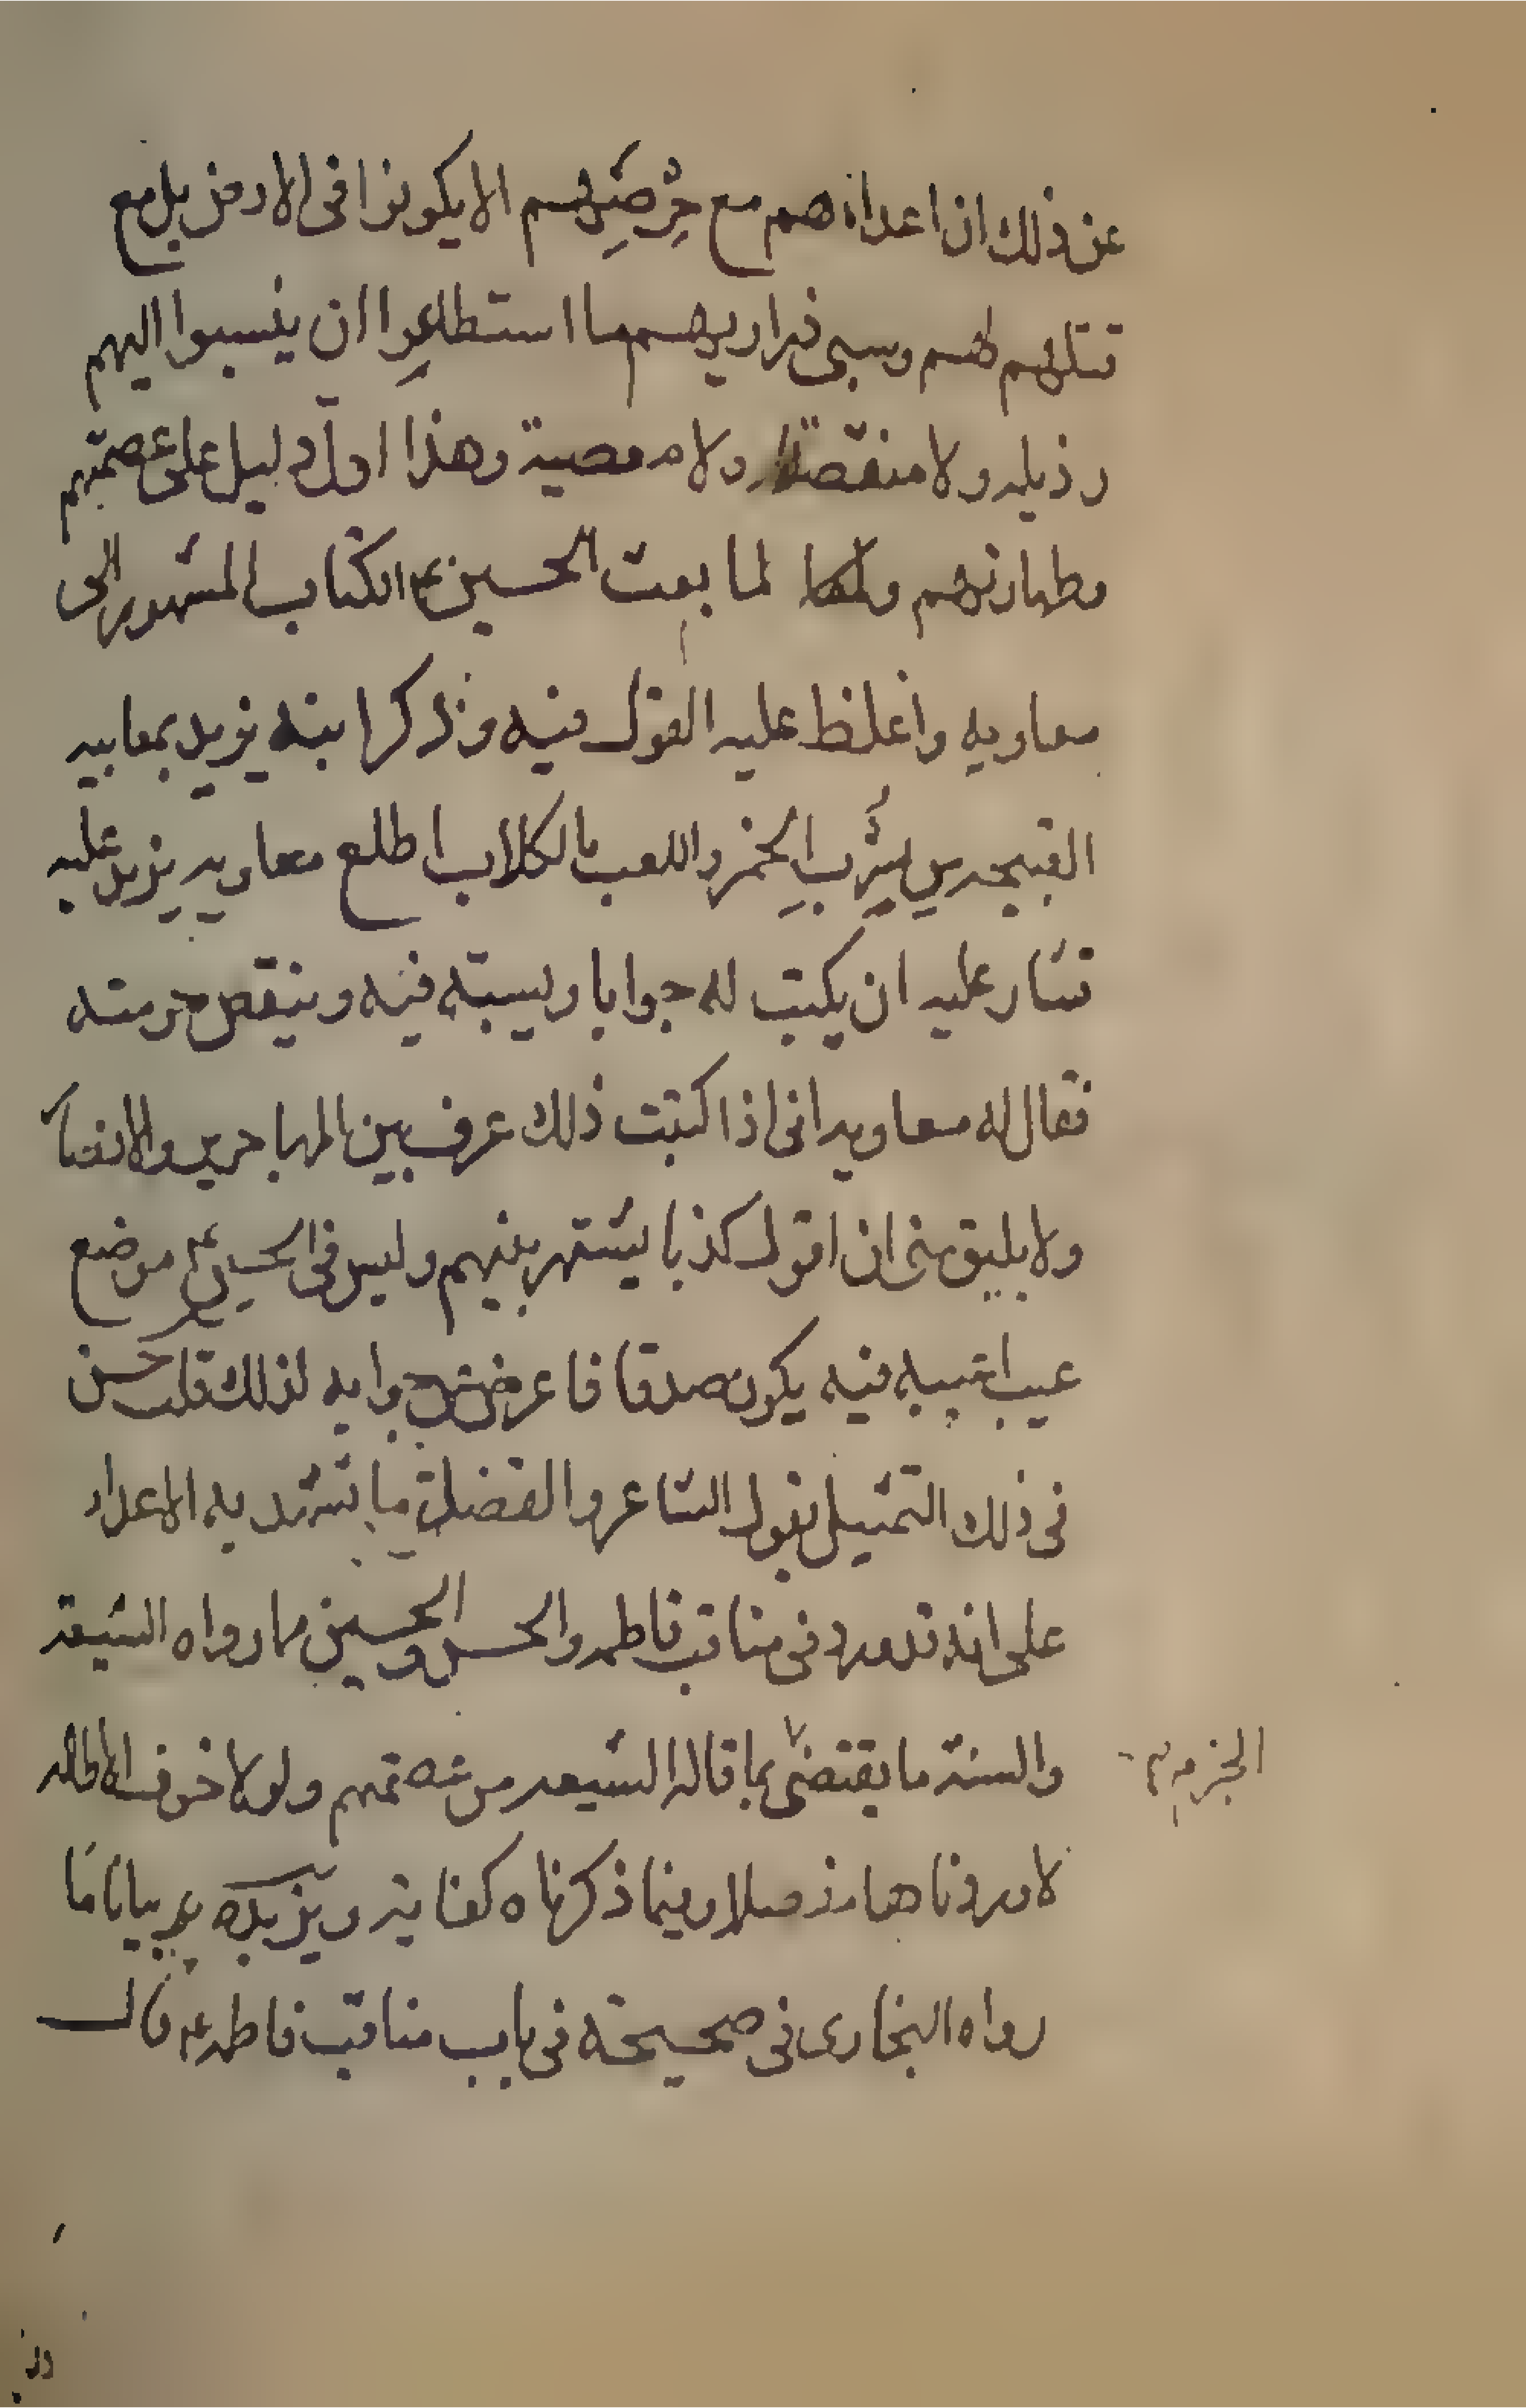 عن ذلك ان اعداءهم مع حرصهم الا يكونوا فى الارض بل مع
قتلهم لهم وسبى ذراريهم ما استطاعوا ان ينسبوا اليهم
رذيله ولا منقصة ولا معصية وهذا اول دليل على عصمتهم
وطهارتهم ولهذا لما بعث الحسين ع الكتاب المشهور الى
معاويه واغلظ عليه القول فيه وذكر ابنه يزيد بمعايبه
القبيحه من شرب الخمر واللعب بالكلاب اطلع معاويه يزيد عليه
فشار عليه ان يكتب له جوابا ويسبه فيه وينقص حرمته
فقال له معاويه انى اذا كتبت ذلك عرف بين المهاجرين والانصار
ولا يليق منى ان اقول كذبا يشتهر بينهم وليس فى الحسين ع موضع
عيب اعيبه فيه يكون صدقا فاعرض عن جوابه لذلك قلت حسن
فى ذلك التمثيل بقول الشاعر والفضل ما تشهد به الاعداء
على انه قد ورد فى مناقب فاطمه والحسن والحسين مما رواه الشيعه
والسنة ما يقتضى بما قاله الشيعه من عصمتهم ولولا خوف الاطاله
لاوردناها مفصلا وفيما ذكرناه كفاية ويزيدك بيانا ما
رواه البخارى فى صحيحه فى باب مناقب فاطمه ع قال